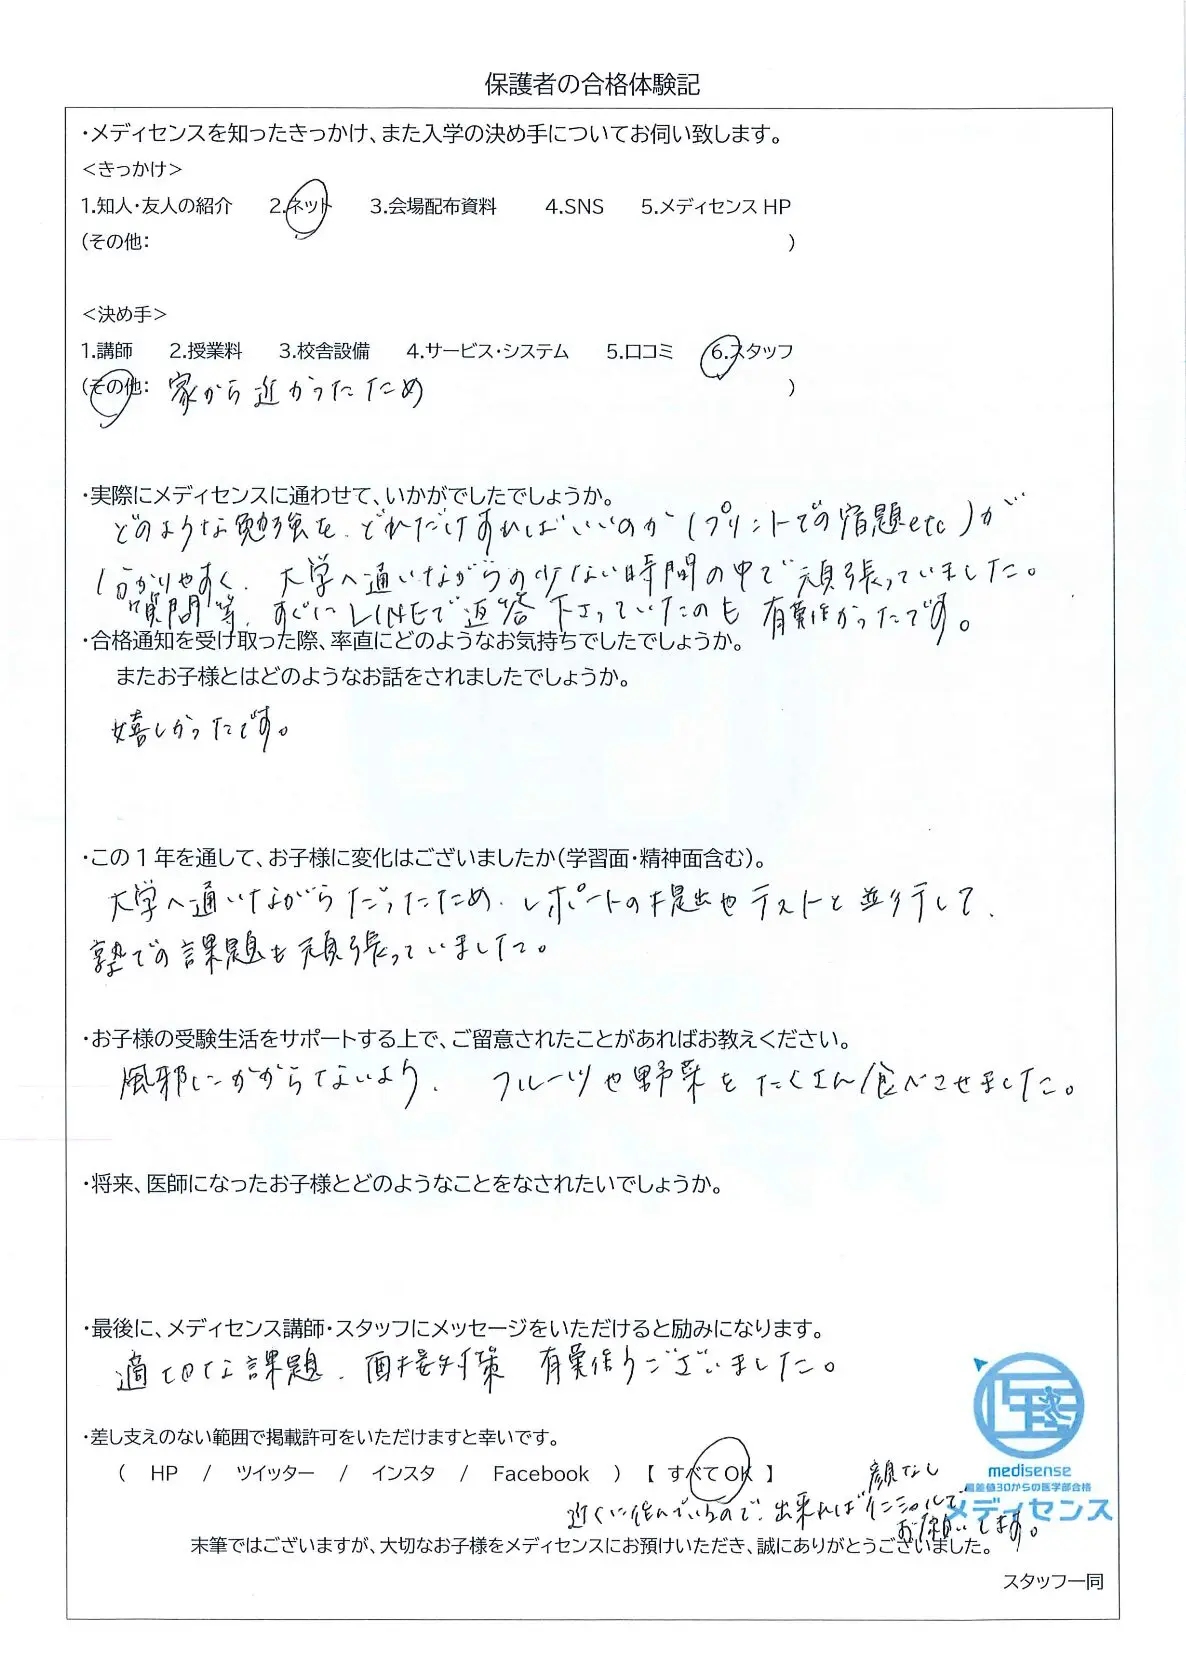 保護者の合格体験記
・メディセンスを知ったきっかけ、また入学の決め手についてお伺い致します。
<きっかけ>
1.知人・友人の紹介 2.ネット 3.会場配布資料 4.SNS 5.メディセンス HP
(その他: )
<決め手>
1.講師 2.授業料 3.校舎設備 4.サービス・システム 5.口コミ 6.スタッフ
(その他: 家から近かったため )
・実際にメディセンスに通わせて、いかがでしたでしょうか。
どのような勉強を、どれだけすればいいのか(プリントでの宿題etc)が
分かりやすく、大学へ通いながらの少ない時間の中で頑張っていました。
質問等、すぐにLINEで返答下さっていたのも有難かったです。
・合格通知を受け取った際、率直にどのようなお気持ちでしたでしょうか。
またお子様とはどのようなお話をされましたでしょうか。
嬉しかったです。
・この1年を通して、お子様に変化はございましたか(学習面・精神面含む)。
大学へ通いながらだったため、レポートの提出やテストと並行して、
塾での課題も頑張っていました。
・お子様の受験生活をサポートする上で、ご留意されたことがあればお教えください。
風邪にかからないよう、フルーツや野菜をたくさん食べさせました。
・将来、医師になったお子様とどのようなことをなされたいでしょうか。
・最後に、メディセンス講師・スタッフにメッセージをいただけると励みになります。
適切な課題、面接対策 有難うございました。
・差し支えのない範囲で掲載許可をいただけますと幸いです。
( HP / ツイッター / インスタ / Facebook ) 【 すべてOK 】
顔なし
近くに住んでいるので、出来ればイニシャルで
お願いします。
medisense
偏差値30からの医学部合格
メディセンス
末筆ではございますが、大切なお子様をメディセンスにお預けいただき、誠にありがとうございました。
スタッフ一同